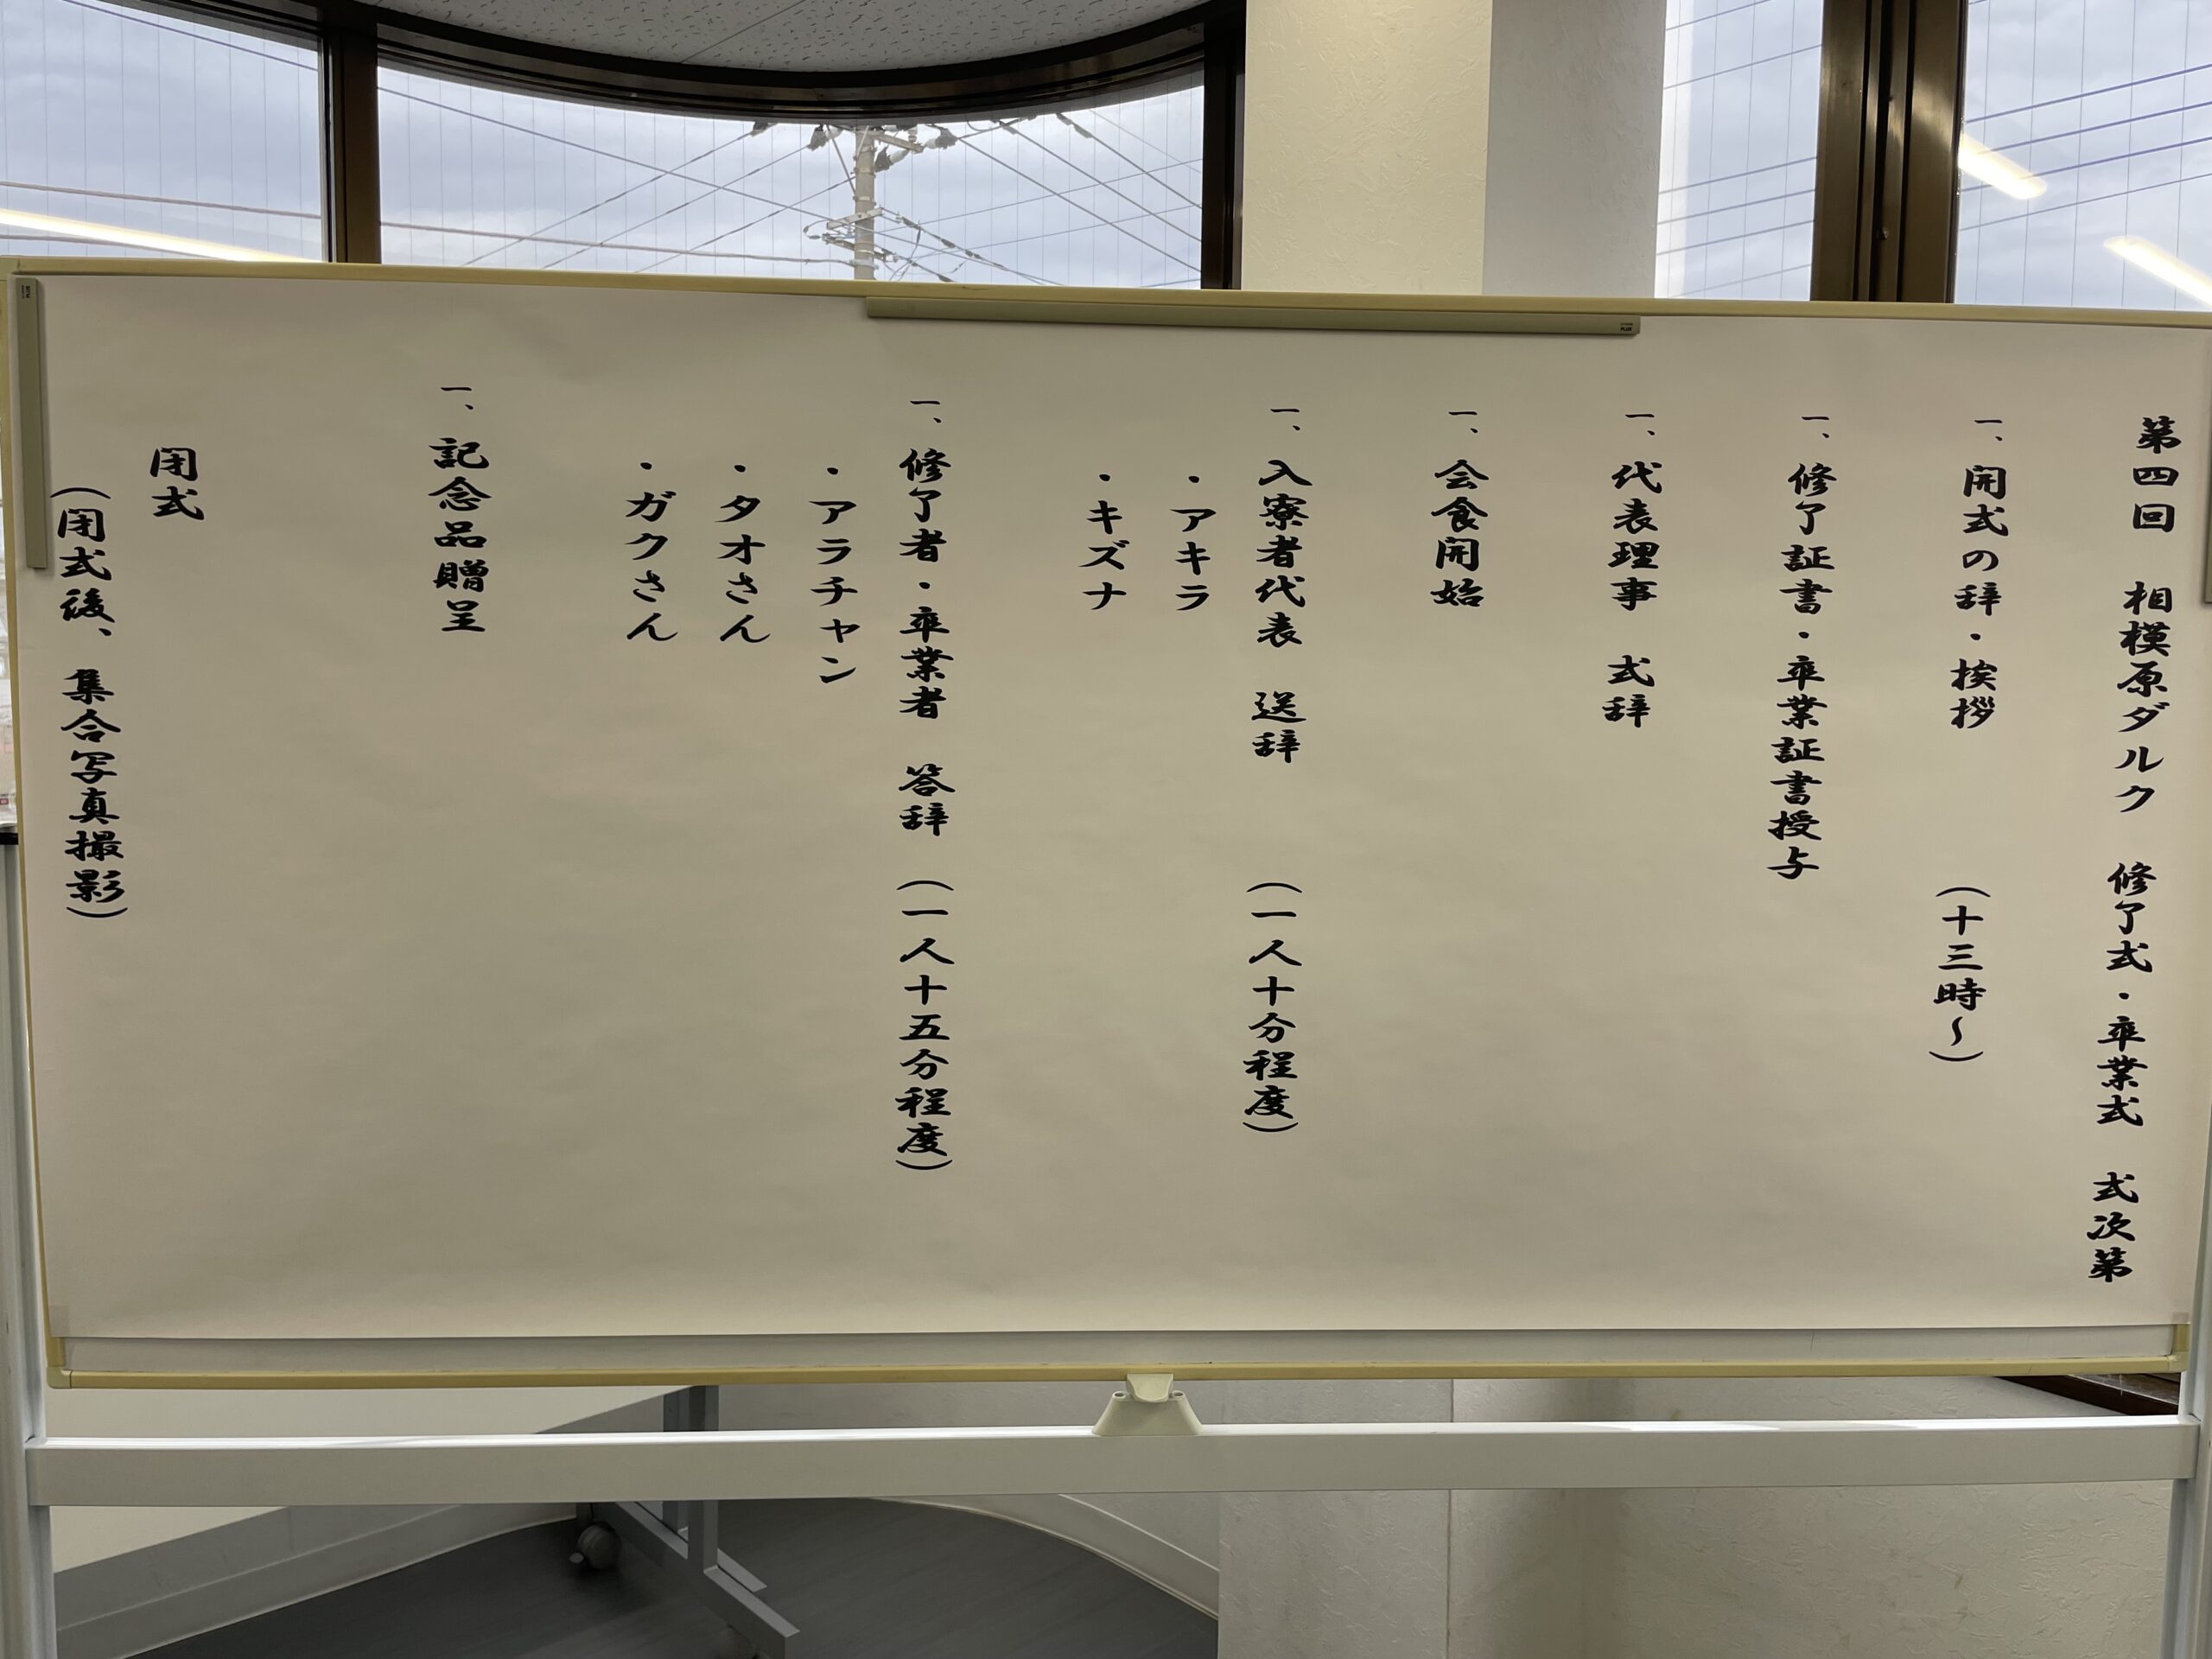 第四回　相模原ダルク　修了式・卒業式　式次第
一、開式の辞・挨拶　（十三時～）
一、修了証書・卒業証書授与
一、代表理事　式辞
一、会食開始
一、入寮者代表　送辞　（一人十分程度）
・アキラ
・キズナ
一、修了者・卒業者　答辞　（一人十五分程度）
・アラチャン
・タオさん
・ガクさん
一、記念品贈呈
閉式
（閉式後、集合写真撮影）
PLUS